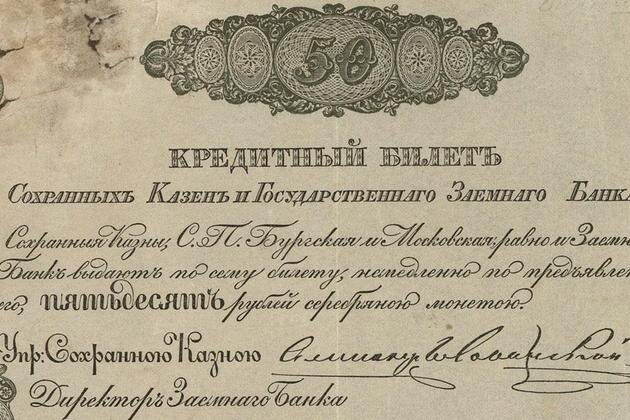 50
КРЕДИТНЫЙ БИЛЕТЪ
СОХРАННЫХЪ КАЗЕНЪ И ГОСУДАРСТВЕННАГО ЗАЕМНАГО БАНКА
Сохранныя Казны, С.П. Бургская и Московская, равно и Заемн
Банкъ выдаютъ по сему билету, немедленно по предъявлен
его, пятьдесятъ рублей серебряною монетою.
Упр: Сохранною Казною
Директоръ Заемнаго Банка